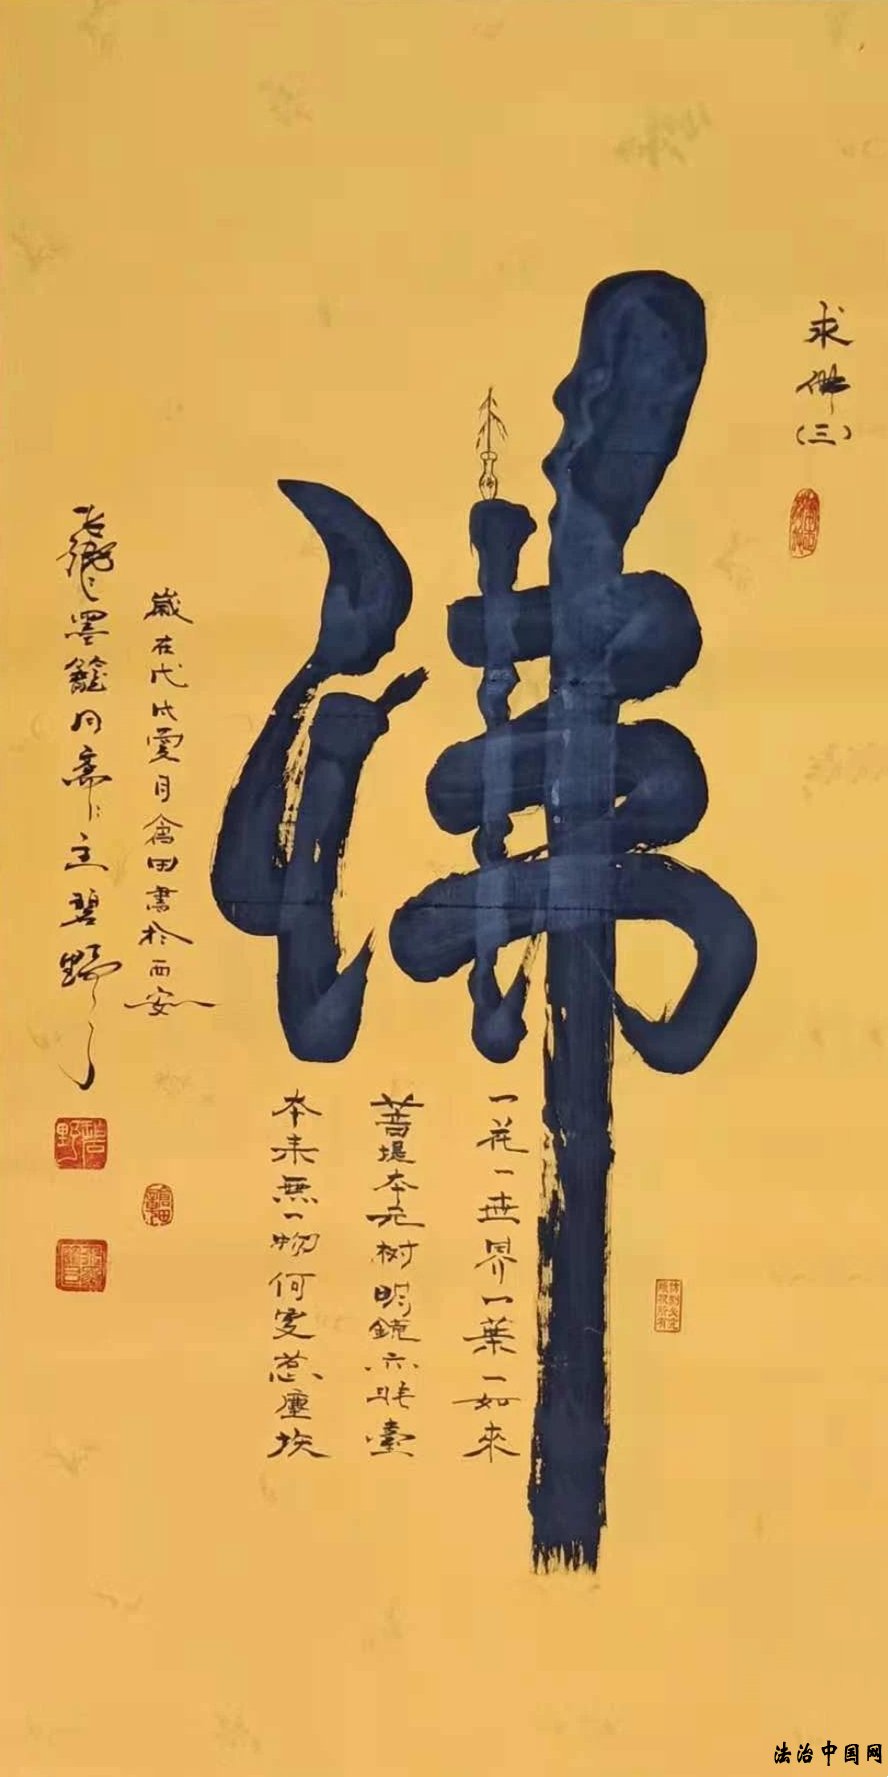 求佛
(三)
佛
一花一世界一葉一如來
菩提本无树明鏡亦非臺
本来無一物何處惹塵埃
歲在戊戌夏月禽田書於西安
墨籠月齋主碧野
碧野
法治中国网